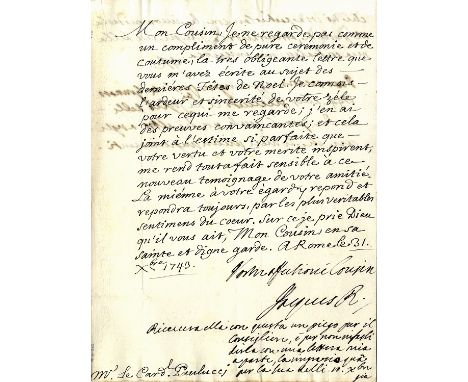 Mon Cousin. Je ne regarde pas comme
un compliment de pure ceremonie et de
coutume, la tres obligeante lettre que
vous m'avez écrite au sujet des
dernieres Fêtes de Noel. Je connois
l'ardeur et sincerité de votre zèle
pour ce qui me regarde; j'en ai
des preuves convaincantes; et cela
joint à l'estime si parfaite que
votre vertu et votre merite inspirent,
me rend tout a fait sensible à ce
nouveau temoignage de votre amitié.
La mienne à votre égard y repond et
repondra toujours, par les plus veritables
sentimens du coeur. Sur ce je prie Dieu
qu'il vous ait, Mon Cousin, en sa
sainte et digne garde. A Rome le 31.
Xbre 1743.
Votre affectioné Cousin
Jacques R.
Ricevera ella con questa un piego per il
Consigliere
con una lettera mia
a parte, la
per la sua delli
Mr. Le Card. Paulucci